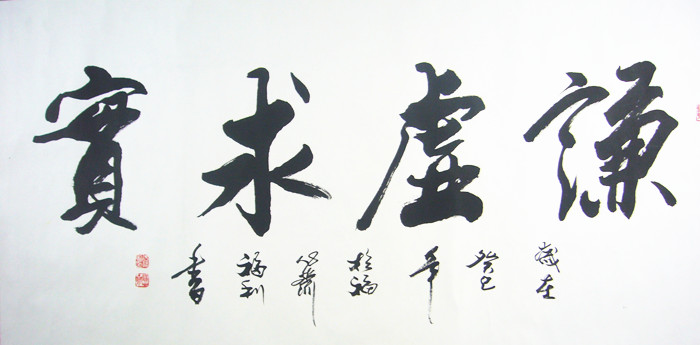 謙虛求實
歲在癸巳年於福心齋福利書